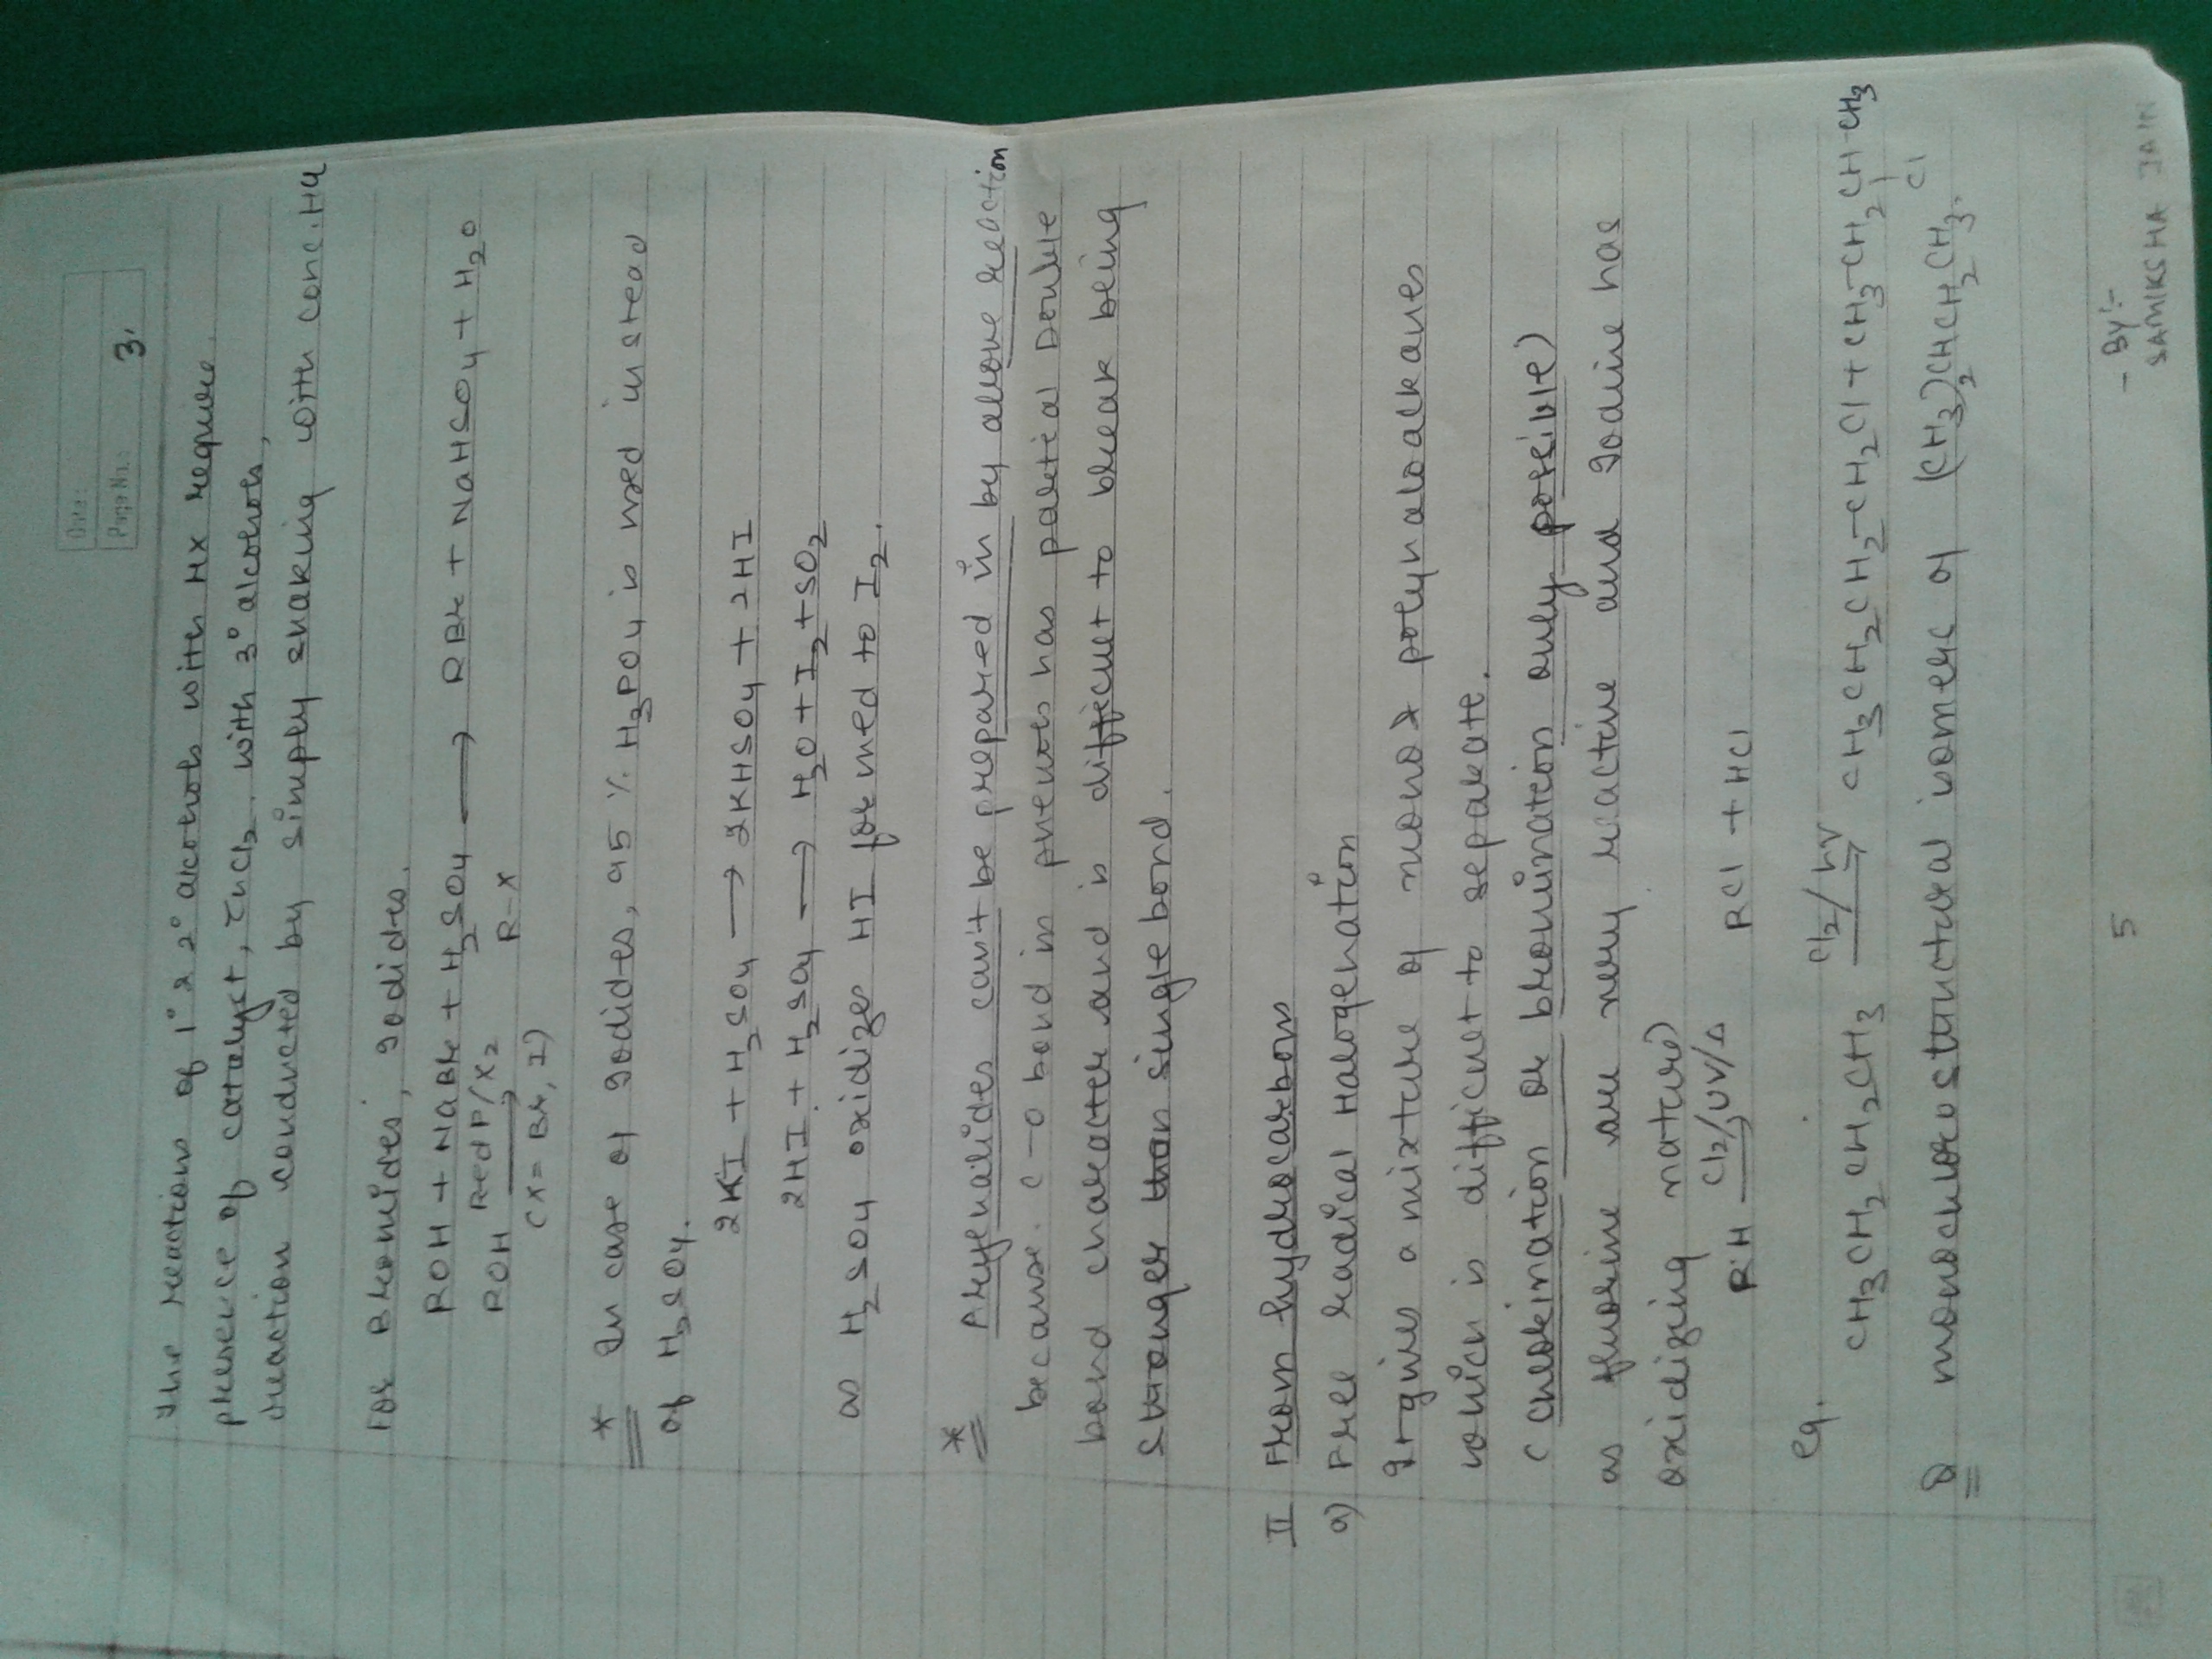 Date:
Page No.: 3.
The reactions of 1° & 2° alcohols with HX require
presence of catalyst, ZnCl2. with 3° alcohols,
reaction conducted by simply shaking with conc. HCl
For Bromides, Iodides.
ROH + NaBr + H2SO4 ⟶ RBr + NaHSO4 + H2O
ROH Red P/X2 ⟶ R-X
(X = Br, I)
* In case of Iodides, 95 % H3PO4 is used in stead
of H2SO4.
2KI + H2SO4 ⟶ 2KHSO4 + 2HI
2HI + H2SO4 ⟶ H2O + I2 + SO2
as H2SO4 oxidizes HI formed to I2.
* Arylhalides can't be prepared in by above reaction
because. C-O bond in phenols has partial Double
bond character and is difficult to break being
stronger than single bond.
II From hydrocarbons
a) Free radical Halogenation
It gives a mixture of mono & polyhaloalkanes
which is difficult to separate.
(chlorination or bromination only possible)
as fluorine are very reactive and Iodine has
oxidizing nature)
RH Cl2/UV/Δ ⟶ RCl + HCl
eg.
CH3CH2CH2CH3 Cl2/hν ⟶ CH3CH2CH2-CH2Cl + CH3-CH2CH-CH3
Cl
Q monochloro structural isomers of (CH3)2CHCH2CH3.
5
- By:-
SAMIKSHA JAIN